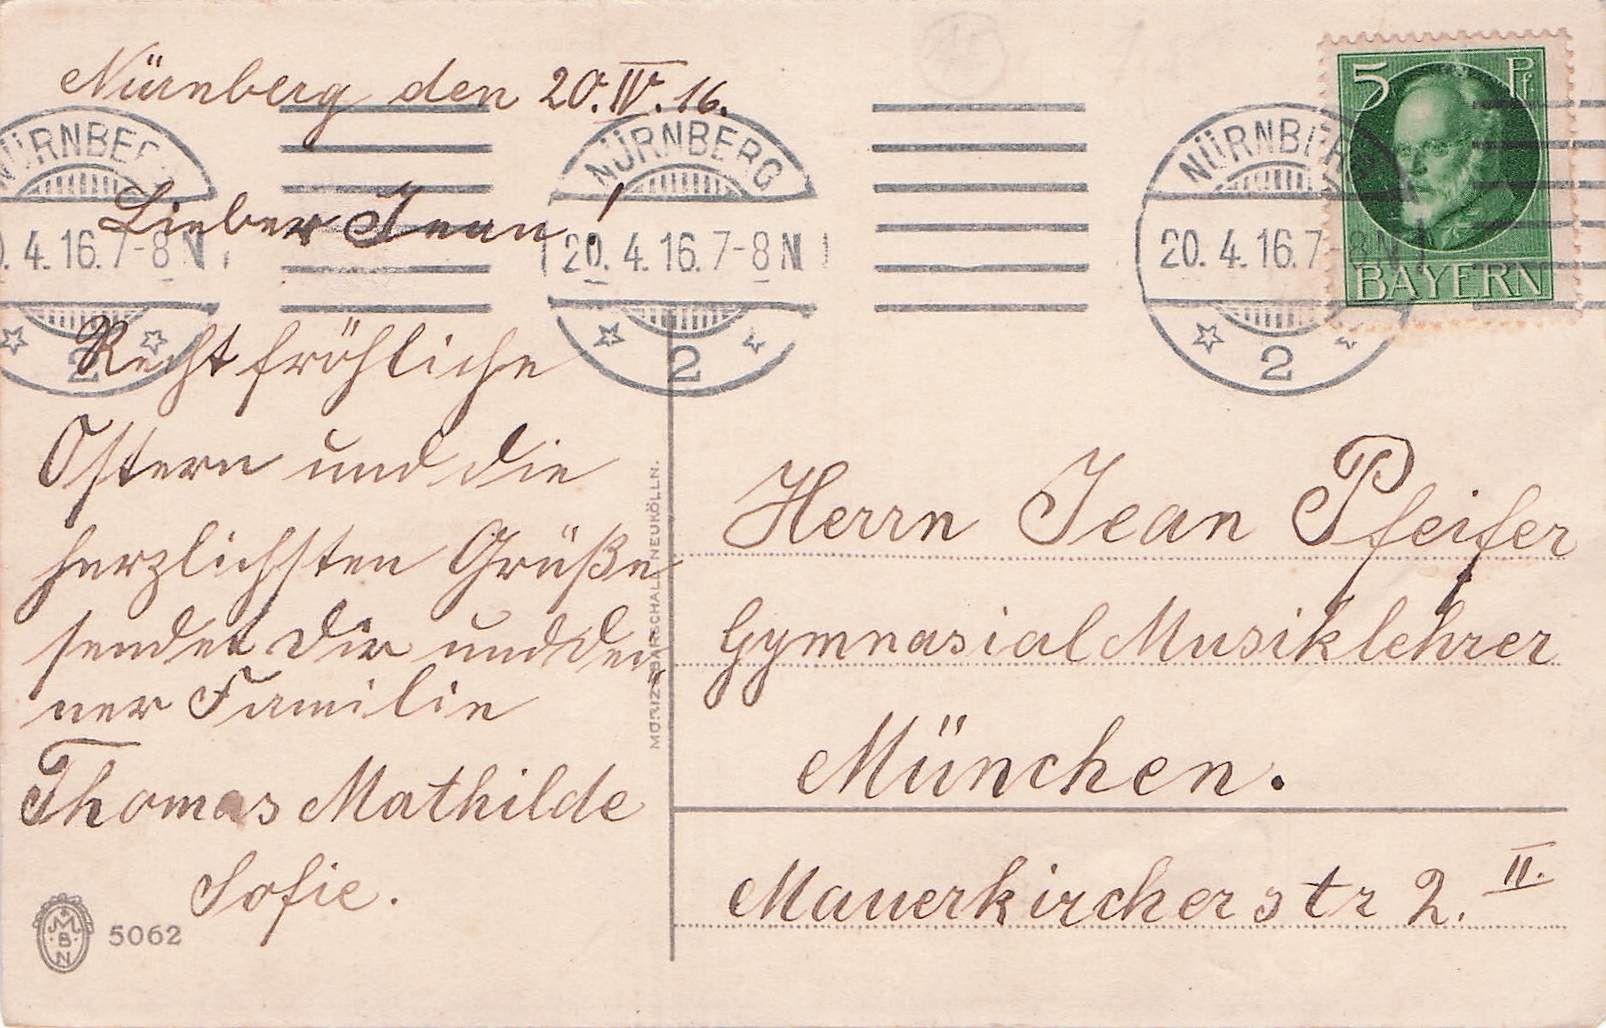 Nürnberg den 20.IV.16.
Lieber Jean!
Recht fröhliche
Ostern und die
herzlichsten Grüße
sendet Dir und dei
ner Familie
Thomas Mathilde
Sofie.
MBN
5062
MORIZ BARSCHALL NEUKÖLLN.
NÜRNBERG
20.4.16.7-8N
2
NÜRNBERG
20.4.16.7-8N
2
NÜRNBERG
20.4.16.7-8N
2
5 Pf
BAYERN
Herrn Jean Pfeifer
Gymnasial Musiklehrer
München.
Mauerkircherstr 2. II.